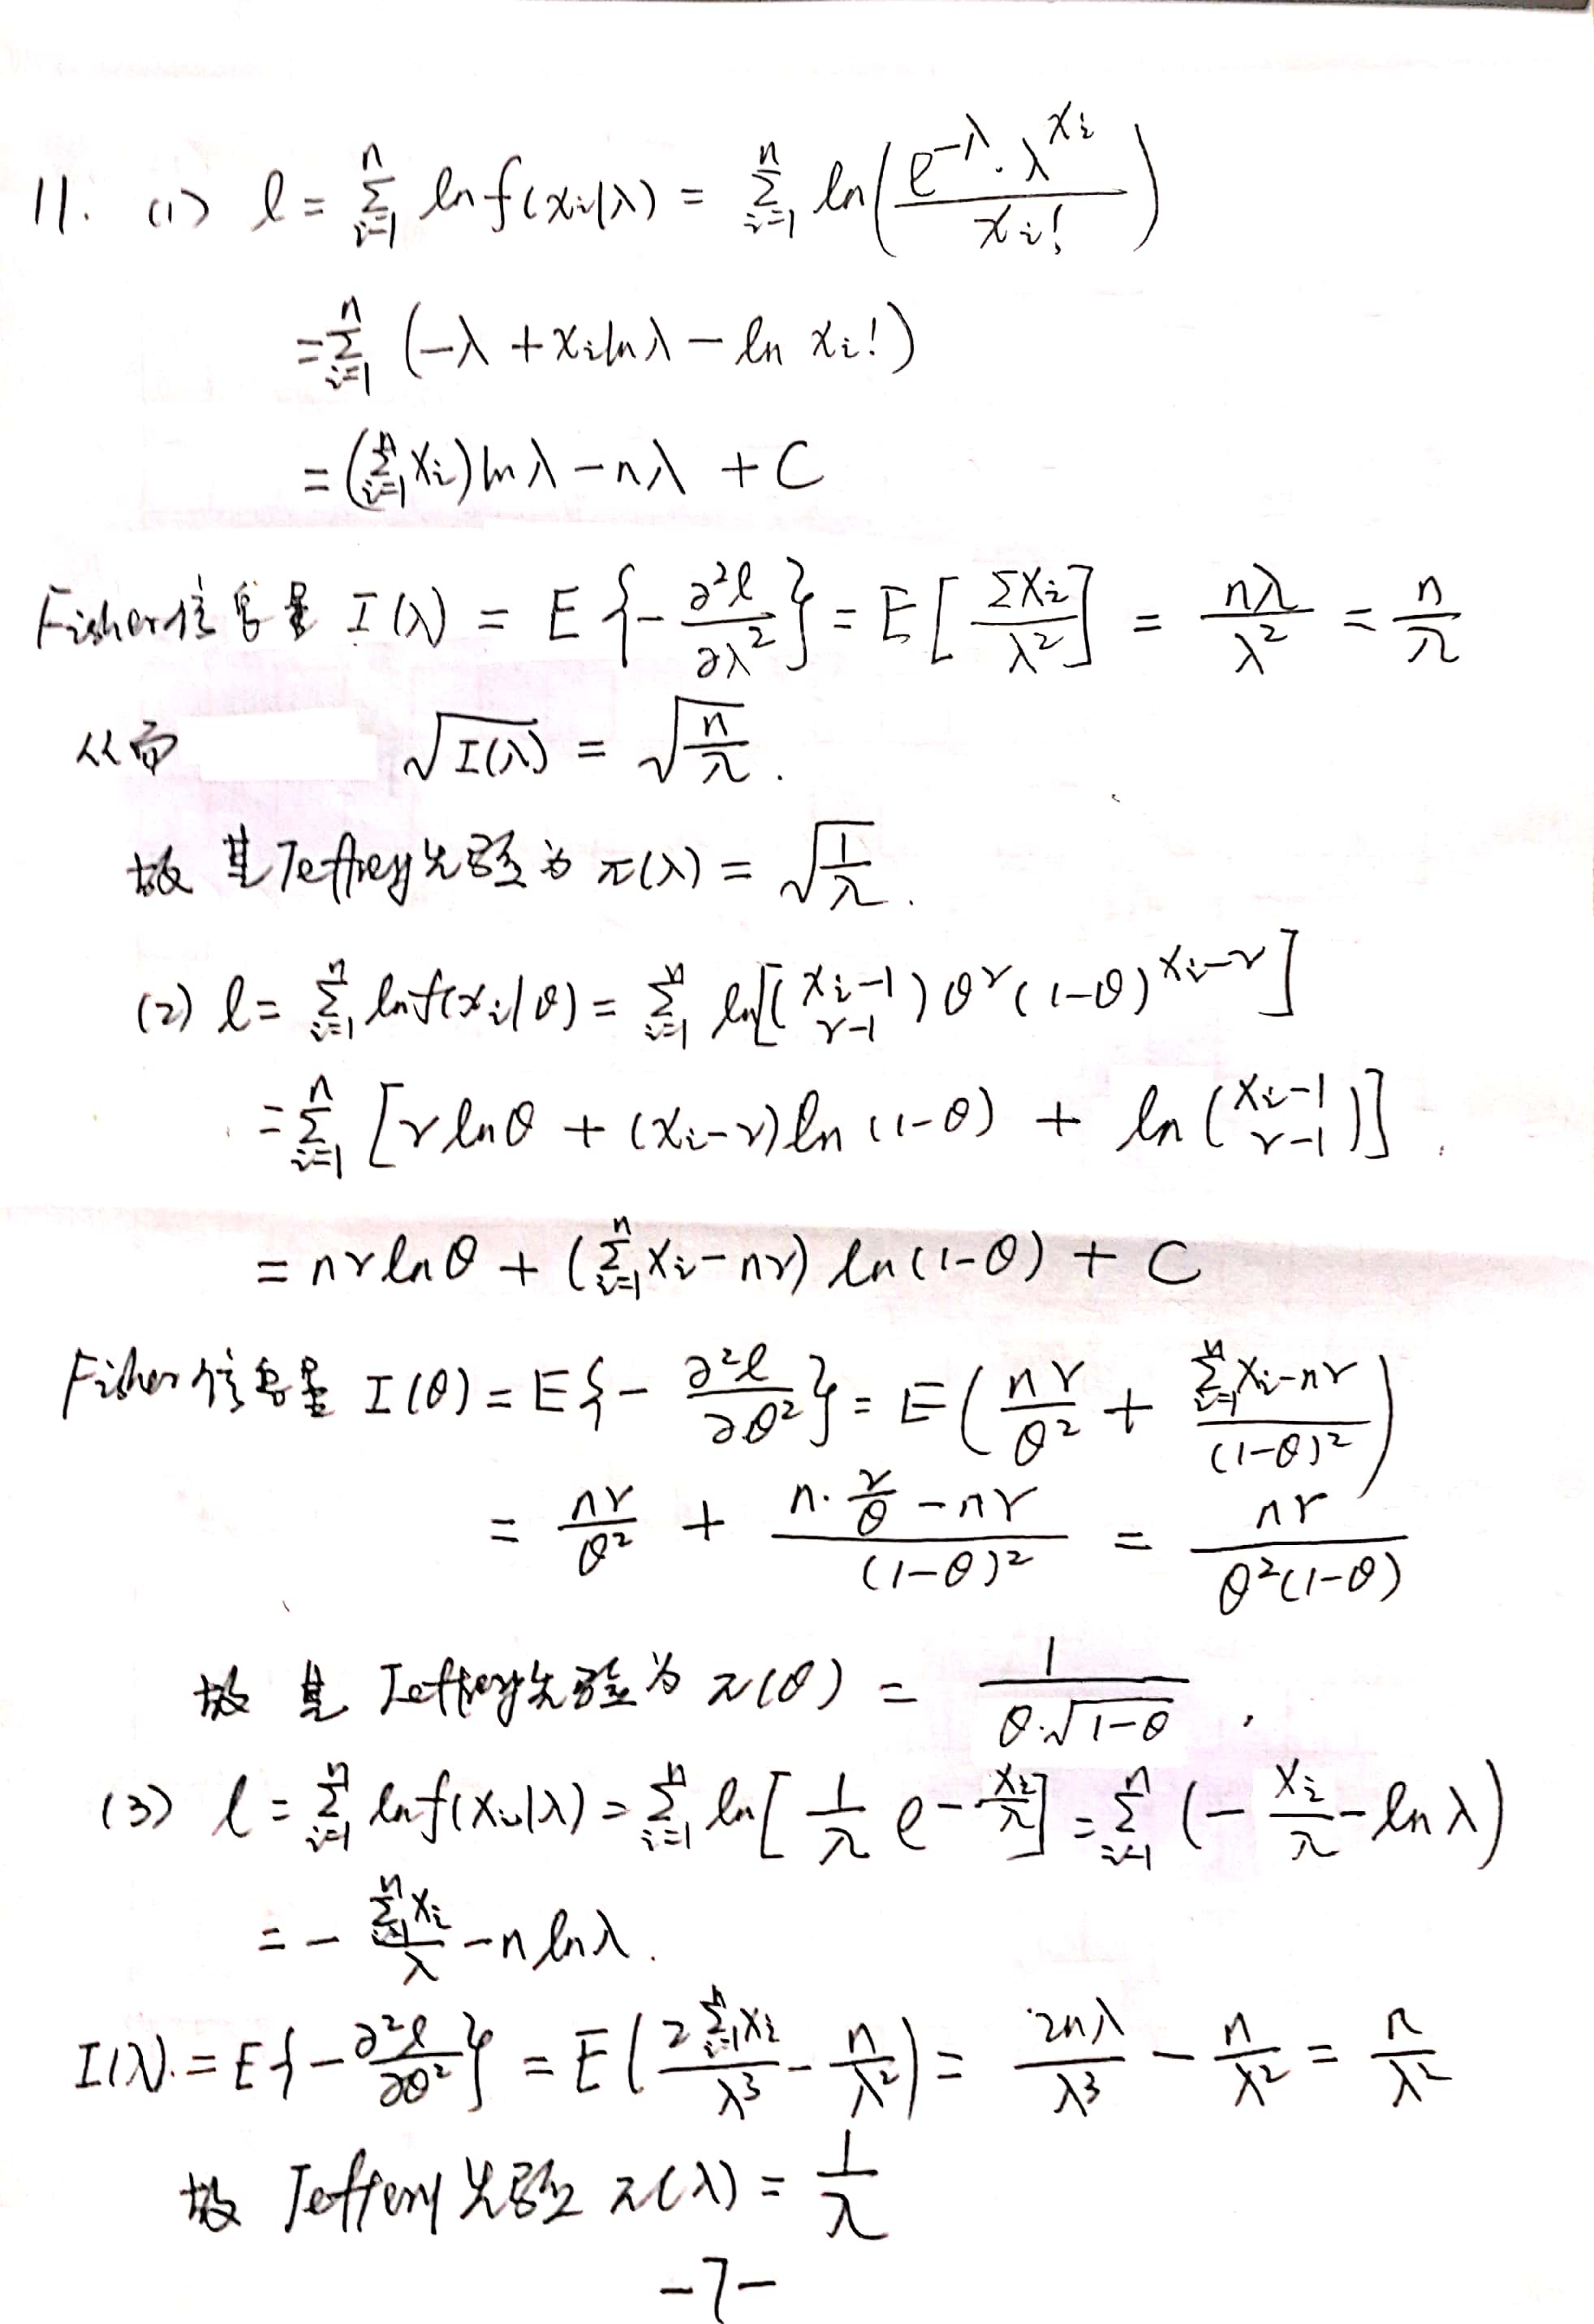 11. (1) l = ∑_{i=1}^{n} ln f(x_i|λ) = ∑_{i=1}^{n} ln( e^{-λ}·λ^{x_i} / x_i! )
= ∑_{i=1}^{n} (-λ + x_i lnλ - ln x_i!)
= (∑_{i=1}^{n} x_i) ln λ - nλ + C
Fisher信息量 I(λ) = E{-∂²l/∂λ²} = E[∑x_i/λ²] = nλ/λ² = n/λ
从而 √I(λ) = √(n/λ).
故 其Jeffrey先验为 π(λ) = √(1/λ).
(2) l = ∑_{i=1}^{n} ln f(x_i|θ) = ∑_{i=1}^{n} ln[(x_i-1 r-1) θ^r (1-θ)^{x_i-r}]
= ∑_{i=1}^{n} [r lnθ + (x_i-r) ln(1-θ) + ln(x_i-1 r-1)].
= nr lnθ + (∑_{i=1}^{n} x_i - nr) ln(1-θ) + C
Fisher信息量 I(θ) = E{-∂²l/∂θ²} = E(nr/θ² + (∑_{i=1}^{n} x_i - nr)/(1-θ)²)
= nr/θ² + (n·r/θ - nr)/(1-θ)² = nr/(θ²(1-θ))
故 其 Jeffrey先验为 π(θ) = 1/(θ·√(1-θ)).
(3) l = ∑_{i=1}^{n} ln f(x_i|λ) = ∑_{i=1}^{n} ln[1/λ e^{-x_i/λ}] = ∑_{i=1}^{n} (-x_i/λ - lnλ)
= - ∑_{i=1}^{n} x_i/λ - n lnλ.
I(λ). = E{-∂²l/∂θ²} = E(2∑_{i=1}^{n} x_i/λ³ - n/λ²) = 2nλ/λ³ - n/λ² = n/λ²
故 Jeffery先验 π(λ) = 1/λ
-7-